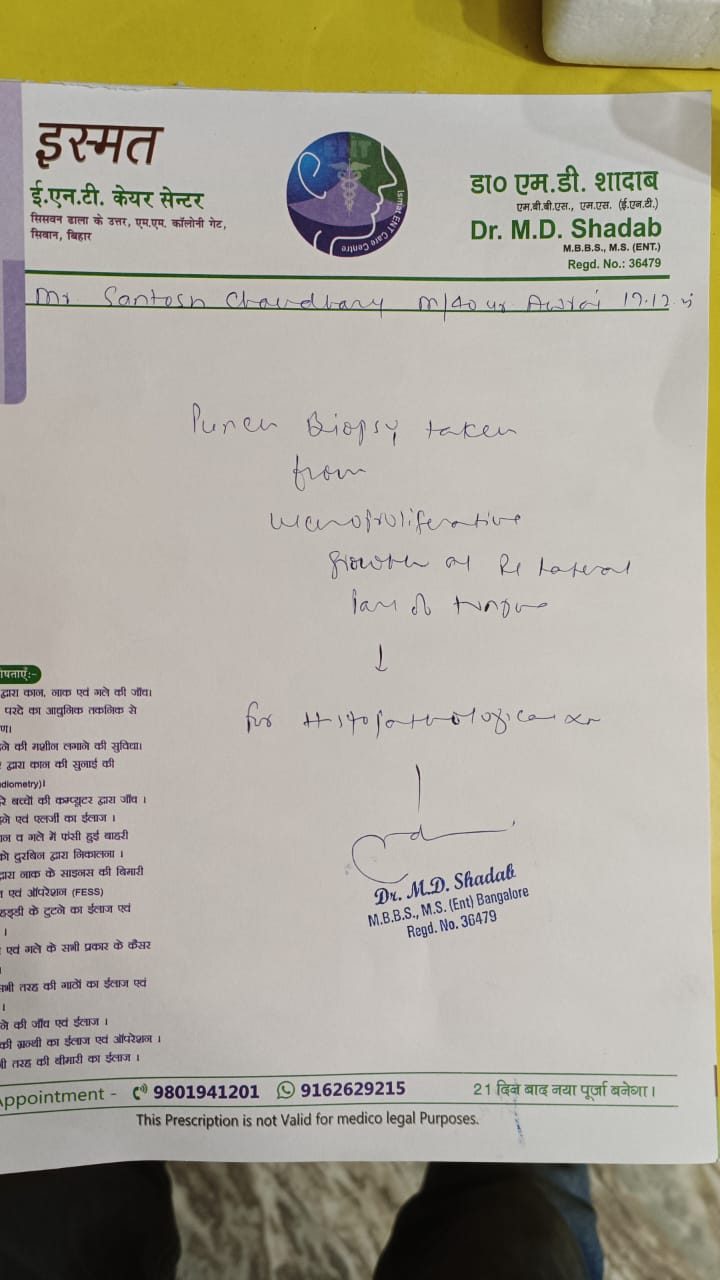 इस्मत
ई.एन.टी. केयर सेन्टर
सिसवन ढाला के उत्तर, एम.एम. कॉलोनी गेट,
सिवान, बिहार
ENT
Ismat ENT Care Centre
डा० एम.डी. शादाब
एम.बी.बी.एस., एम.एस. (ई.एन.टी.)
Dr. M.D. Shadab
M.B.B.S., M.S. (ENT.)
Regd. No.: 36479
Mr. Santosh Chaudhary M/40 yr 17.12
Punch Biopsy taken
from
growth at Rt Lateral
part of tongue
↓
for Histopathological
Dr. M.D. Shadab
M.B.B.S., M.S. (Ent) Bangalore
Regd. No. 36479
षताएँ:-
द्वारा कान, नाक एवं गले की जाँच।
परदे का आधुनिक तकनिक से
ने की मशीन लगाने की सुविधा।
द्वारा कान की सुनाई की
diometry)।
रे बच्चों की कम्प्यूटर द्वारा जाँच ।
ने एवं एलर्जी का ईलाज ।
न व गले में फंसी हुई बाहरी
को दुरबिन द्वारा निकालना ।
द्वारा नाक के साइनस की बिमारी
एवं ऑपरेशन (FESS)
हड्डी के टुटने का ईलाज एवं
।
एवं गले के सभी प्रकार के कैंसर
सभी तरह की गाठों का ईलाज एवं
।
ने की जाँच एवं ईलाज ।
की ग्रन्थी का ईलाज एवं ऑपरेशन ।
ी तरह की बीमारी का ईलाज ।
Appointment - 9801941201 9162629215 21 दिन बाद नया पूर्जा बनेगा।
This Prescription is not Valid for medico legal Purposes.